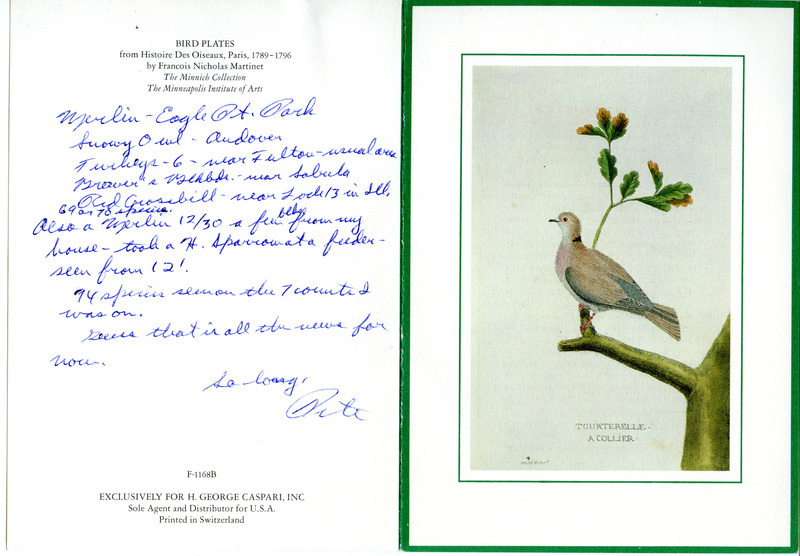 BIRD PLATES
from Histoire Des Oiseaux, Paris, 1789–1796
by Francois Nicholas Martinet
The Minnich Collection
The Minneapolis Institute of Arts
Merlin - Eagle Pt. Park
Snowy Owl - Andover
Turkeys - 6 - near Fulton - usual area
Brewer's Blkbds. - near Sabula
Red Crossbill - near Lock 13 in Ill.
69 or 70 species.
Also a Merlin 12/30 a few blks from my
house - took a H. Sparrow at a feeder -
seen from 12'.
94 species seen on the 7 counts I
was on.
Guess that is all the news for
now.
So long,
Pete
F-1168B
EXCLUSIVELY FOR H. GEORGE CASPARI, INC
Sole Agent and Distributor for U.S.A.
Printed in Switzerland
TOURTERELLE -
A COLLIER -